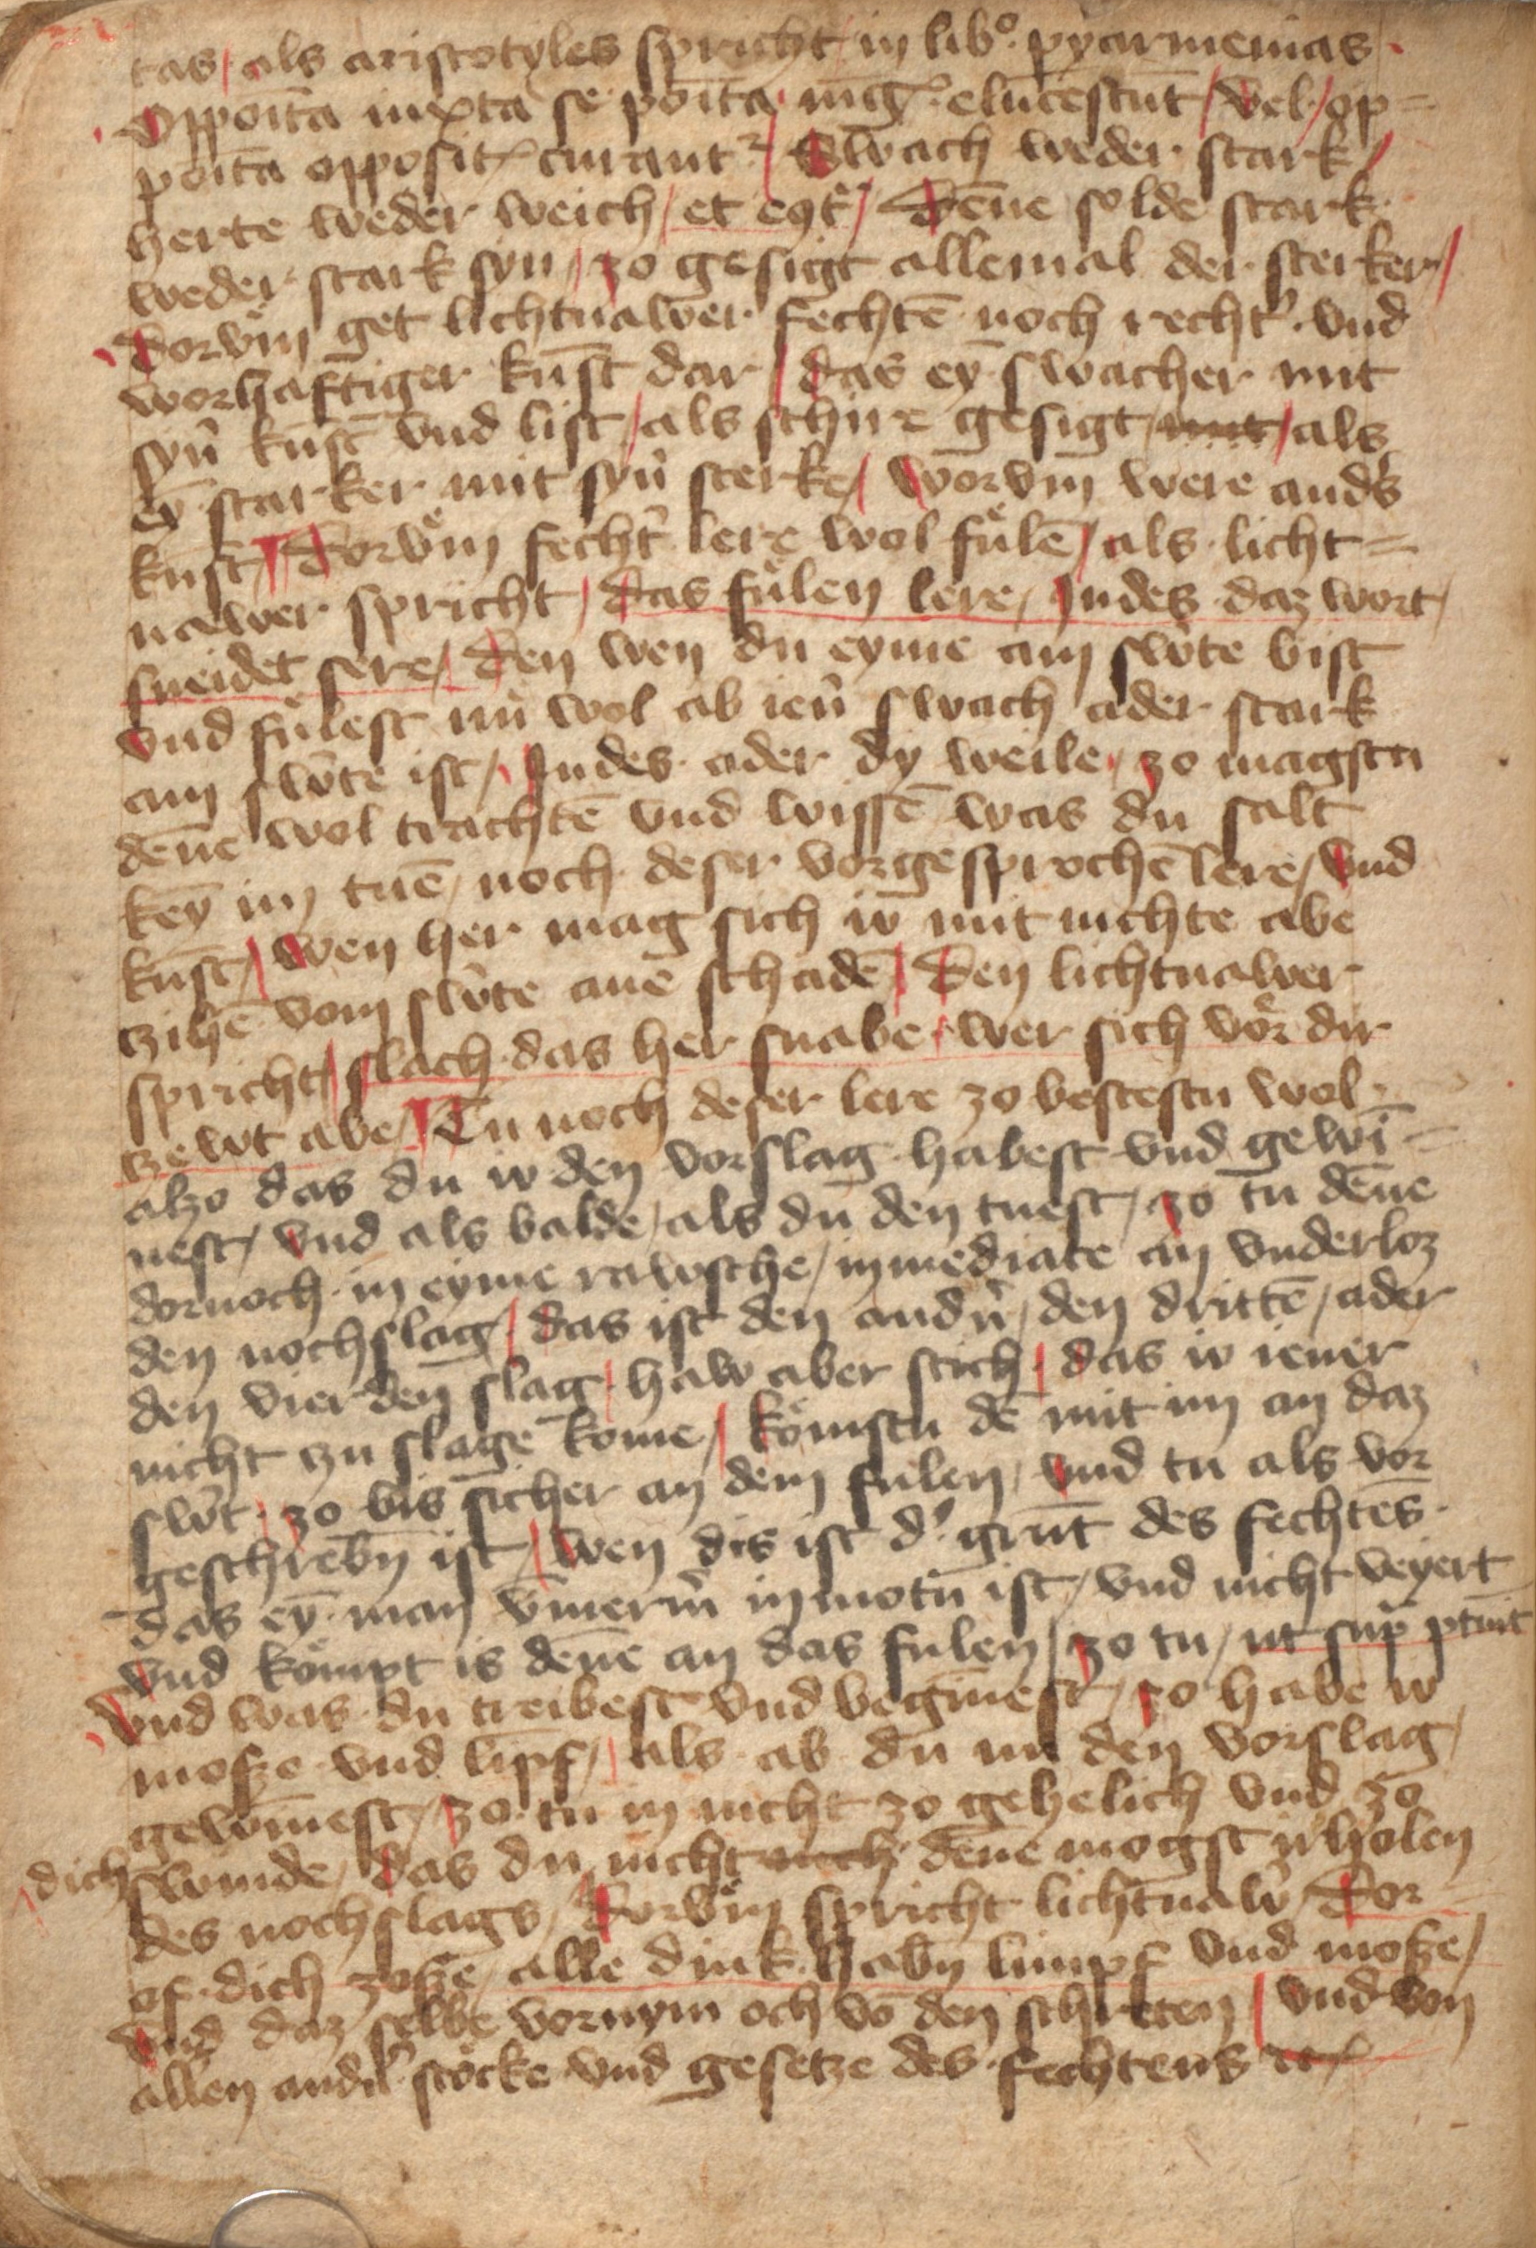 tas / als aristotyles spricht / in libº. pyarmenias.
Oppoïta iuxta se poïta mag̃. elucescūt / Vel / op=
poïta opposit curantʳ / Swach weder stark /
herte weder weich / et eqͬ / Dēne solde stark
weder stark syn / zo gesigt allemal der sterker /
Dorvm̄ get lichtnawer fechtē noch rechtʾ. vnd
worhaftiger kūnst dar / das eȳ swacher mit
synʾ kūnst vnd list / als schire gesigt / mit / als
eȳ starker mit synʾ sterke / Worvm were andʾs
kunst / Dorvm̄ fechtʾ lere wol fuͤlē / als licht=
nawer spricht / das fuͤlen lere / Indes daz wort /
sneidet sere / Den wen du eyme am swʾte bist
vnd fuͤlest nu wol ab ienʾ swach ader stark
am swʾte ist / Indes ader dy weile / zo magstu
dēne wol trachtē vnd wissē was du salt
keȳ im tuē / noch deser vorgesprochē lere / vnd
kunst / Wen her mag sich io mit nichte abe
zihē vom swʾte ane schadē / Den lichtnawer
spricht / slach das her snabe / wer sich voͤr dir
zewt abe / Tu noch deser lere zo bestestu wol
alzo das du io den vorslag habest vnd gewī=
nest / vnd als balde / als du den tuest / zo tu dēne
dornoch in eyme rawsche / immediate an vnderloz
den nochslag / das ist den andʾn / den drittē / ader
den vierden slag / haw aber stich / das io iener
nicht zu slage kome / koͤmstu dē mit im an daz
swʾt / zo bis sicher an dem fulen / vnd tu als vor
geschrebn̄ ist / Wen dis ist dʾ grūt des fechtēs
das eȳ man v̄mermʾ in motū ist / vnd nicht veyert
vnd koͤmpt is dēne an das fulen / zo tu / ut supͣ ptuit
Vnd was du treibest vnd begīnest / zo habe io
mosze vnd limpf / als ab du im den vorslag /
gewīnest / zo tu in nicht zo gehelich vnd zo
dich swinde / das du nicht noch dēne mogst irholen
des nochslags / Dorvm̄ spricht lichtnawʾ / Dor-
of dich zosze / alle dink habn̄ limpf vnd mosze /
Vnd daz selbe vornym och vō den schreten / vnd von
allen andʾn stoͤcke vnd gesetze des fechtens etc